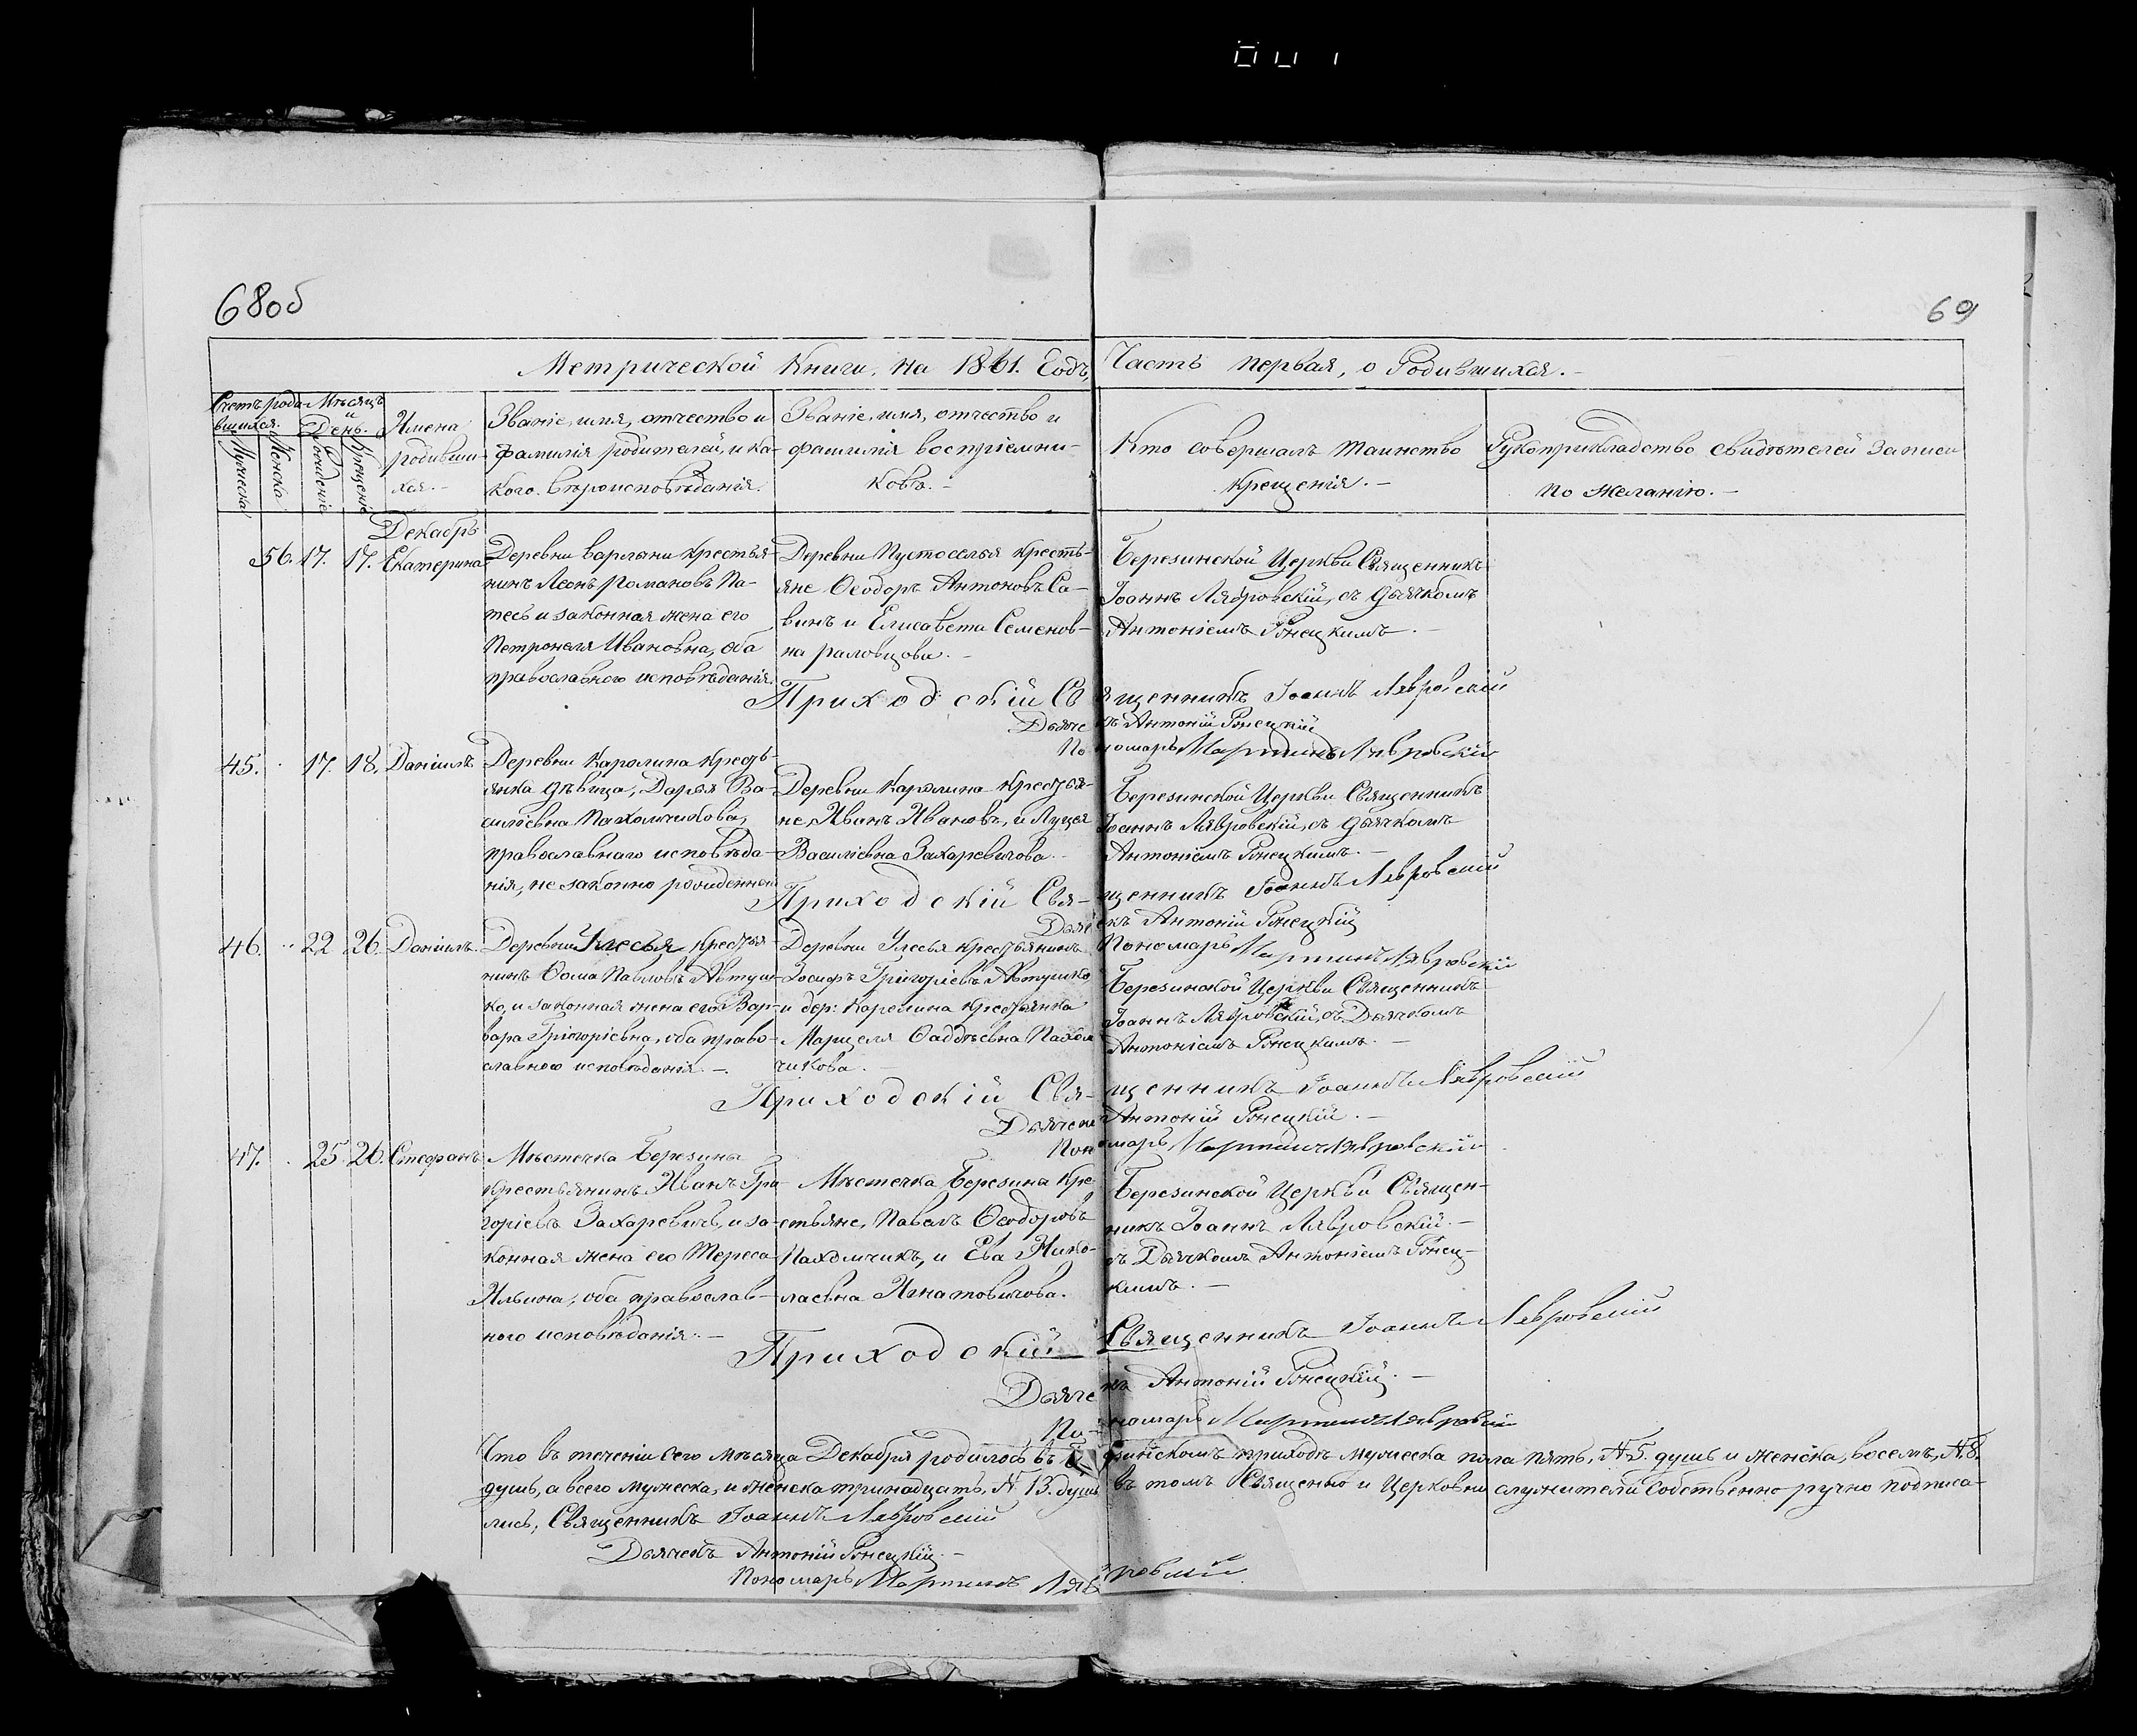 68об
69
Метрической Книги, на 1861. Годъ, Часть первая, о Родившихся. –
Счетъ роди-
вшихся.
Мѣсяцъ
и
День.
Мужеска
Женска
Рожденіе
Крещеніе
Имена
родивши-
хся. –
Званіе, имя, отчество и
фамилія родителей, и ка-
кого вѣроисповѣданія.
Званіе, имя, отчество и
фамилія воспріемни-
ковъ. –
Кто совершалъ таинство
крещенія. –
Рукоприкладство свидѣтелей записи
по желанію. –
Декабрь
56. 17. 17. Екатерина
Деревни Варлыни крестья-
нинъ Леонъ Романовъ Па-
тесь и законная жена его
Петронеля Ивановна, оба
православного исповѣданія.
Деревни Пустоселья кресть-
яне Ѳеодоръ Антоновъ Са-
винъ и Елисавета Семенов-
на
Березинской Церкви Священникъ
Іоаннъ Лявровскій, съ дьячкомъ
Антоніемъ Рянецкимъ. –
Приходскій Священникъ Іоаннъ Лявровскій
Дьячекъ Антоній Рянецкій
Пономарь Мартинъ Лявровскій
45. 17. 18. Даніилъ
Деревни Каролина Кресть-
янка дѣвица, Дарья Ва-
силіевна Пахомчикова,
православнаго исповѣда-
нія, не законно рожденный
Деревни Каролина Крестья-
не, Иванъ Ивановъ, и Луцея
Василіевна Захаревичова. –
Березинской Церкви Священникъ
Іоаннъ Лявровскій, съ дьячкомъ
Антоніемъ Рянецкимъ. –
Приходскій Священникъ Іоаннъ Лявровскій
Дьячекъ Антоній Рянецкій
Пономарь Мартинъ Лявровскій
46. 22 26. Даніилъ.
Деревни Улесья крестья-
нинъ Ѳома Павловъ Автуш-
ко, и законная жена его Вар-
вара Григоріевна, оба право-
славного исповѣданія. –
Деревни Улесья крестьянинъ
Іосифъ Григоріевъ Автушко
и дер: Каролина крестьянка
Марцеля Ѳаддѣевна Пахом
чикова. –
Березинской Церкви Священникъ
Іоаннъ Лявровскій, съ Дьячкомъ
Антоніемъ Рянецкимъ. –
Приходскій Священникъ Іоаннъ Лявровскій
Дьячекъ Антоній Рянецкій. –
Пономарь Мартинъ Лявровскій
47. 25. 26. Стефанъ
Мѣстечка Березины
крестьянинъ Иванъ Гри
горіевъ Захаревичъ, и за-
конная жена его Тереса
Ильина, оба православ-
ного исповѣданія. –
Мѣстечка Березина Кре
стьяне, Павелъ Ѳеодоровъ
Пахомчикъ, и Ева Нико-
лаевна Игнатовичова.
Березинской Церкви Священ-
никъ Іоаннъ Лявровскій. –
съ Дьячкомъ Антоніемъ Рянец-
кимъ. –
Приходскій Священникъ Іоаннъ Лявровскій
Дьячекъ Антоній Рянецкій. –
Пономарь Мартинъ Лявровскій
Что въ теченіи сего мѣсяца Декабря родилось въ приходѣ мужеска пола пять, № 5. душъ и женска, восемъ, № 8.
душъ, а всего мужеска, и женска тринадцать, № 13. душъ въ томъ Священно и Церковно служители собственно ручно подписа-
лись, Священникъ Іоаннъ Лявровскій
Дьячекъ Антоній Рянецкій. –
Пономарь Мартинъ Лявровскій